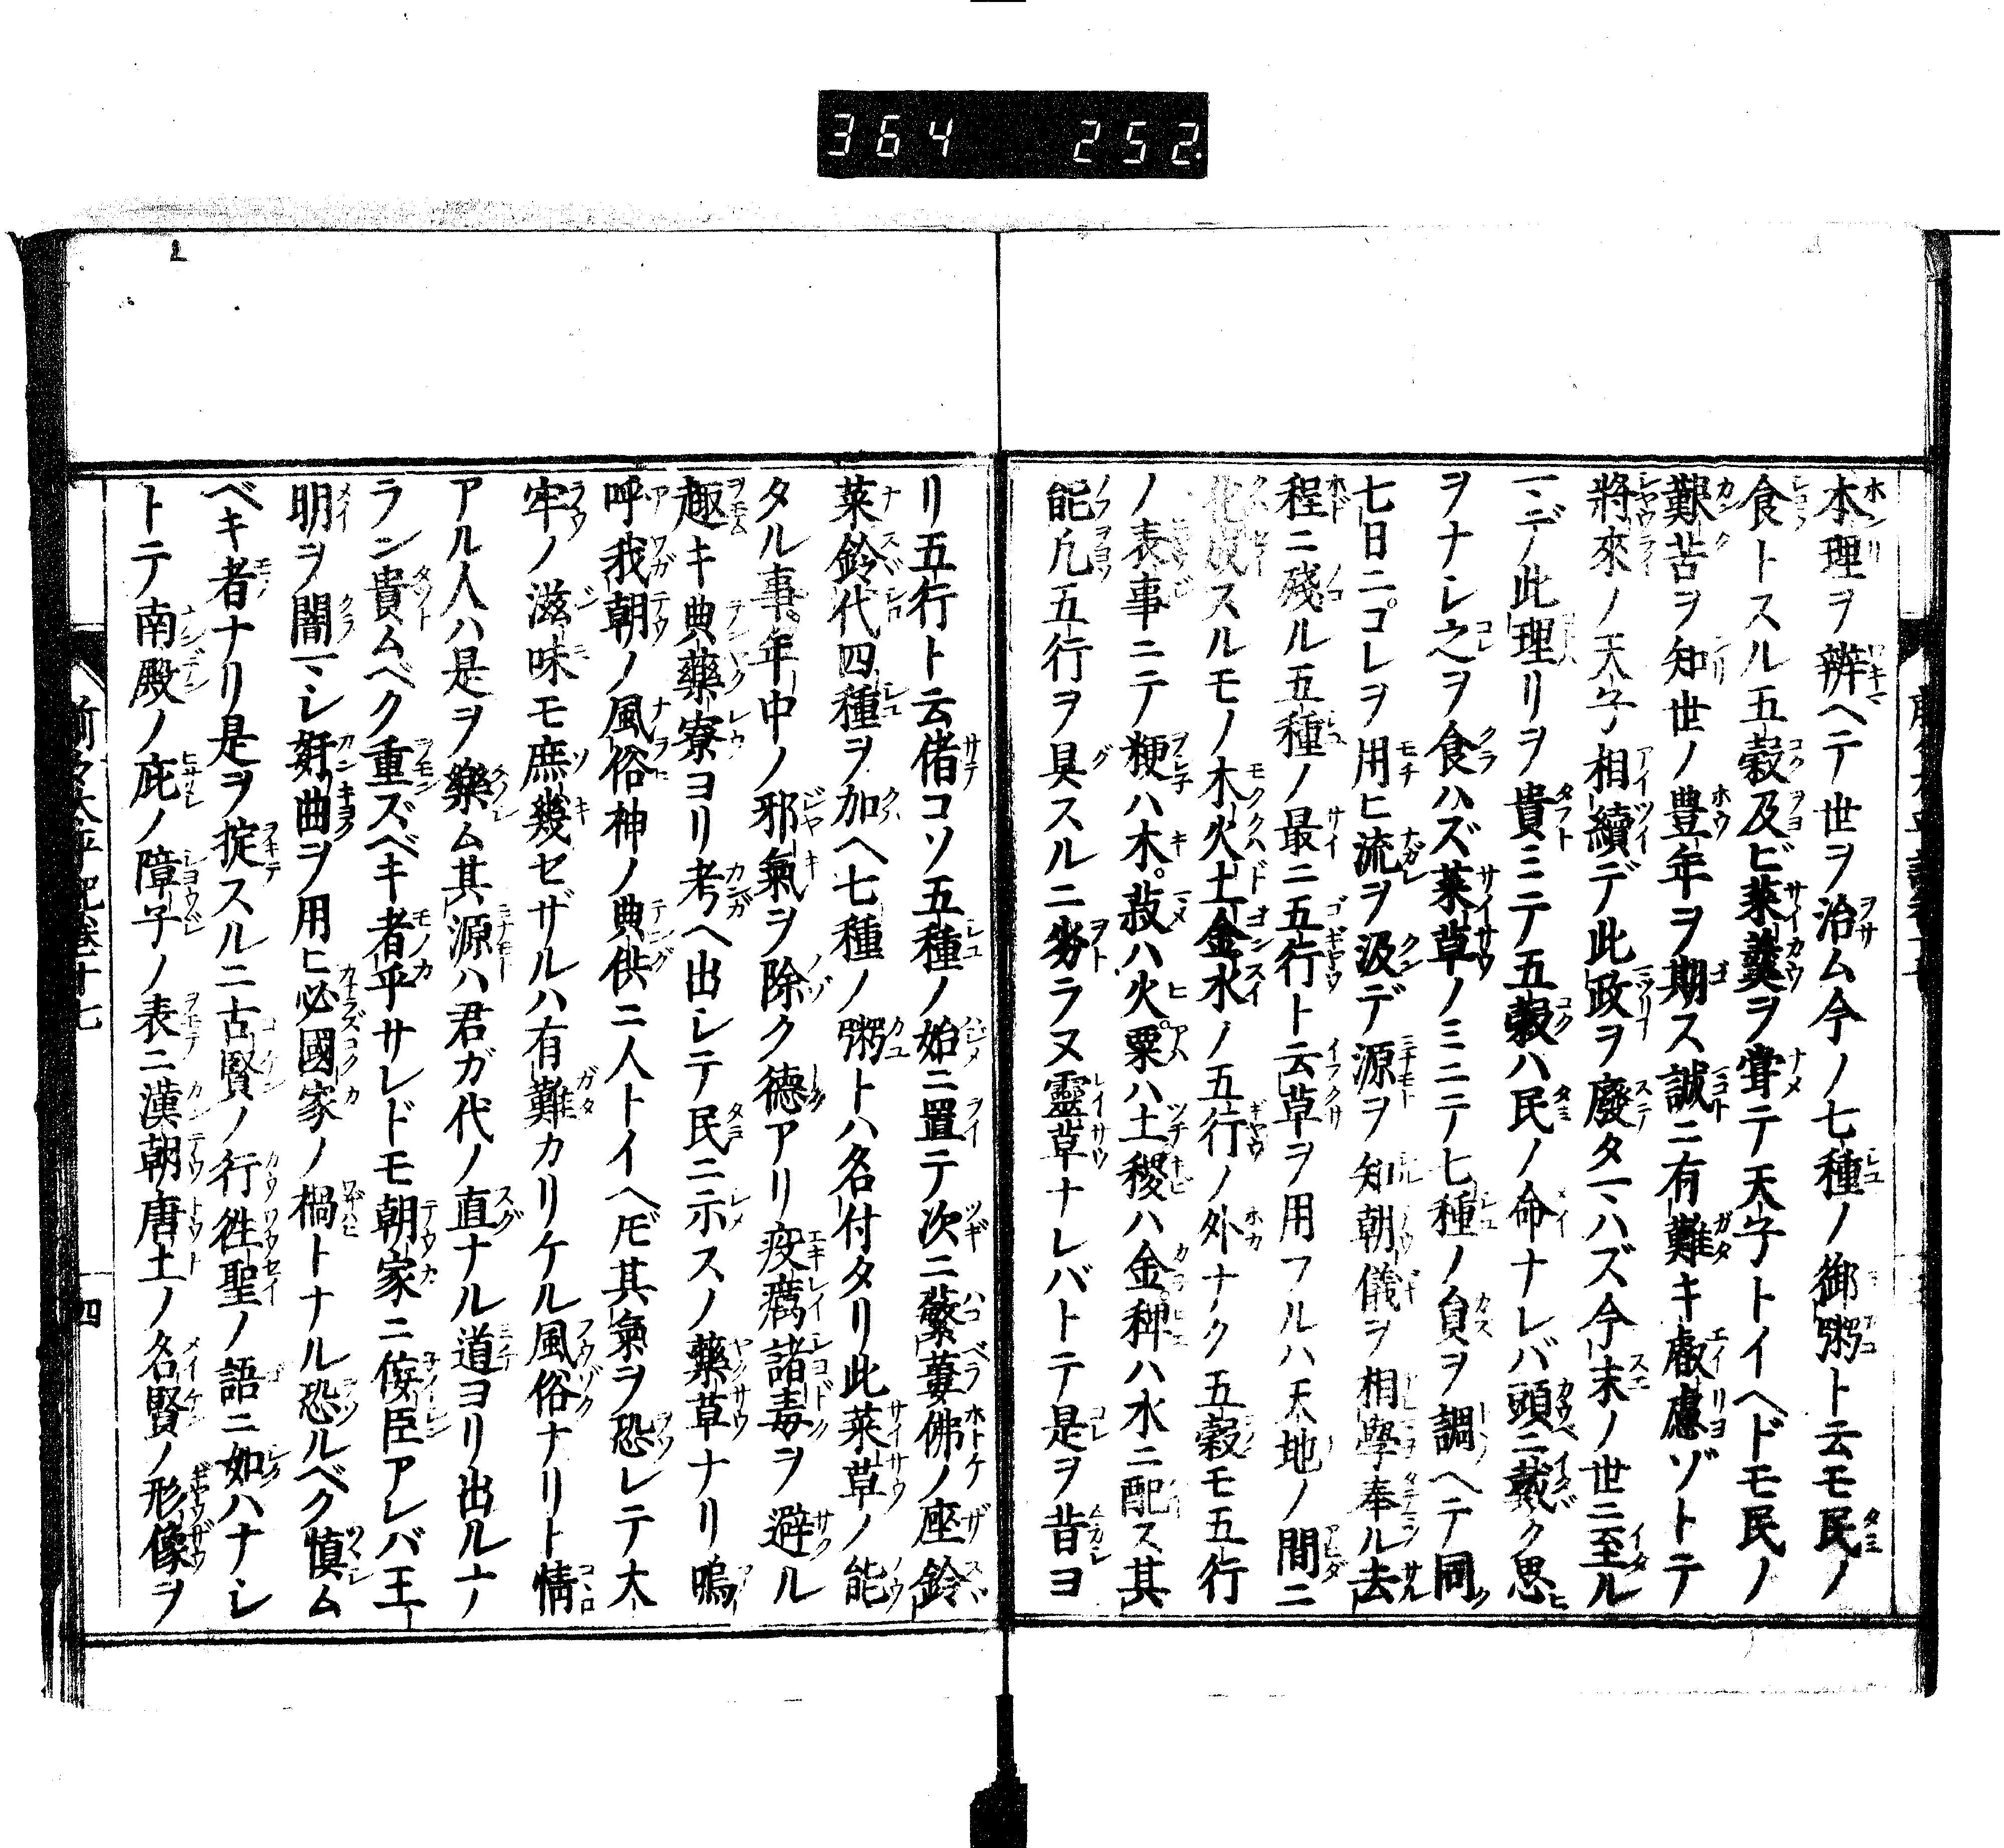 364 252
本理ヲ辨ヘテ世ヲ治ム今ノ七種ノ御粥ト云モ民ノ
食トスル五穀及ビ菜羹ヲ甞テ天子トイヘドモ民ノ
艱苦ヲ知世ノ豊年ヲ期ス誠ニ有難キ叡慮ゾトテ
將來ノ天子相續デ此政ヲ廢タマハズ今末ノ世ニ至ル
マデ此理リヲ貴ミニテ五穀ハ民ノ命ナレバ頭ニ戴ク思ヒ
ヲナシ之ヲ食ハズ菜草ノミニテ七種ノ員ヲ調ヘテ同ク
七日ニコレヲ用ヒ流ヲ汲デ源ヲ知朝儀ヲ相學奉ル去
程ニ殘ル五種ノ最ニ五行ト云草ヲ用フルハ天地ノ間ニ
化成スルモノ木火土金水ノ五行ノ外ナク五穀モ五行
ノ表事ニテ粳ハ木。菽ハ火。粟ハ土稷ハ金。稗ハ水ニ配ス其
能凡五行ヲ具スルニ劣ラヌ靈草ナレバトテ是ヲ昔ヨ
リ五行ト云偖コソ五種ノ始ニ置テ次ニ蘩蔞佛ノ座鈴
菜鈴代四種ヲ加ヘ七種ノ粥トハ名付タリ此菜草ノ能
タル事。年中ノ邪氣ヲ除ク德アリ疫癘諸毒ヲ避ル
趣キ典藥寮ヨリ考ヘ出シテ民ニ示スノ藥草ナリ嗚
呼我朝ノ風俗神ノ典供ニ人トイヘ𪜈其氣ヲ恐レテ大
牢ノ滋味モ庶幾セザルハ有難カリケル風俗ナリト情
アル人ハ是ヲ樂ム其源ハ君ガ代ノ直ナル道ヨリ出ルナ
ラン貴ムベク重ズベキ者乎サレドモ朝家ニ侫臣アレバ王
明ヲ闇マシ姧曲ヲ用ヒ必國家ノ禍トナル恐ルベク慎ム
ベキ者ナリ是ヲ掟スルニ古賢ノ行徃聖ノ語ニ如ハナシ
トテ南殿ノ庇ノ障子ノ表ニ漢朝唐土ノ名賢ノ形像ヲ
前太平記卷十七
四